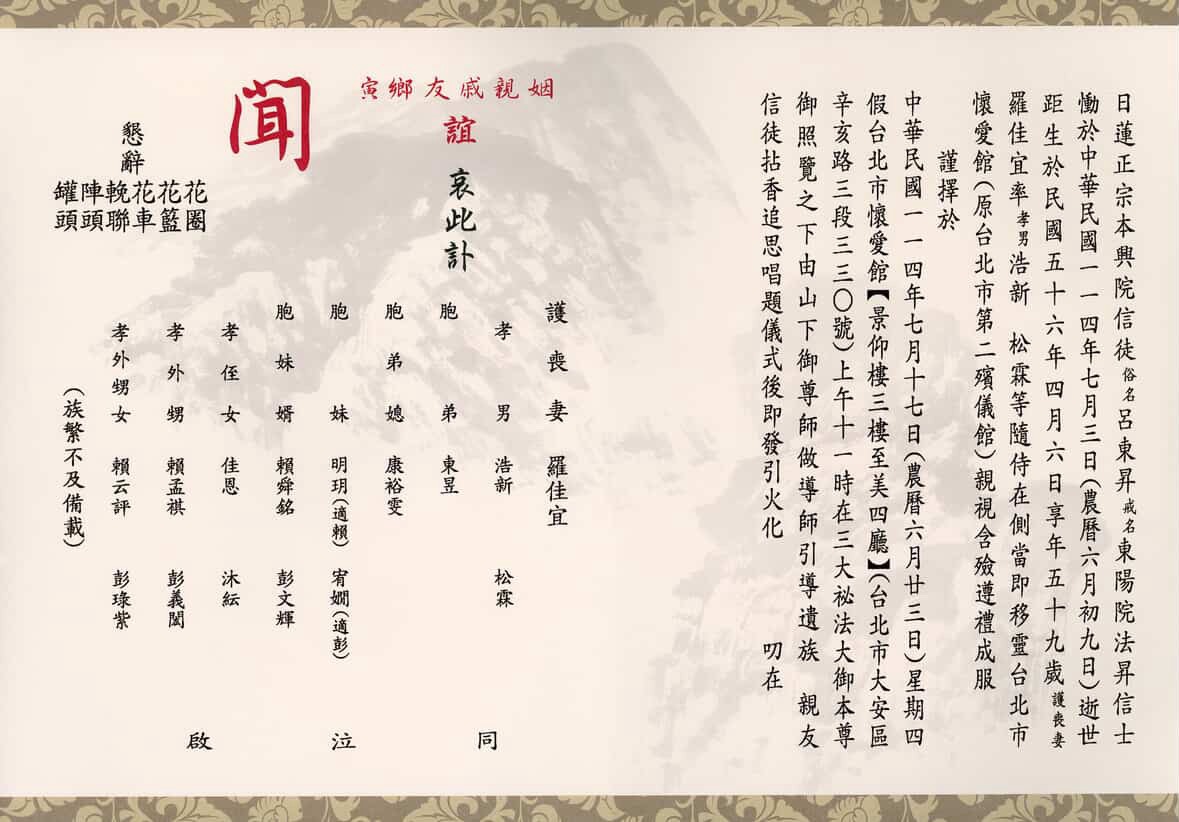 日蓮正宗本興院信徒俗名呂東昇戒名東陽院法昇信士
慟於中華民國一一四年七月三日(農曆六月初九日)逝世
距生於民國五十六年四月六日享年五十九歲護喪妻
羅佳宜率孝男浩新　松霖等隨侍在側當即移靈台北市
懷愛館(原台北市第二殯儀館)親視含殮遵禮成服
謹擇於
中華民國一一四年七月十七日(農曆六月廿三日)星期四
假台北市懷愛館【景仰樓三樓至美四廳】(台北市大安區
辛亥路三段三三〇號)上午十一時在三大祕法大御本尊
御照覽之下由山下御尊師做導師引導遺族　親友
信徒拈香追思唱題儀式後即發引火化　叨在
姻親戚友鄉寅
誼　哀此訃
聞
護喪妻　羅佳宜
孝男　浩新　松霖
胞弟　東昱
胞弟媳　康裕雯
胞妹　明玥(適賴)　宥嫺(適彭)
胞妹婿　賴舜銘　彭文輝
孝侄女　佳恩　沐紜
孝外甥　賴孟祺　彭義閎
孝外甥女　賴云評　彭琭紫
(族繁不及備載)
同泣啟
懇辭
花圈
花籃
花車
輓聯
陣頭
罐頭